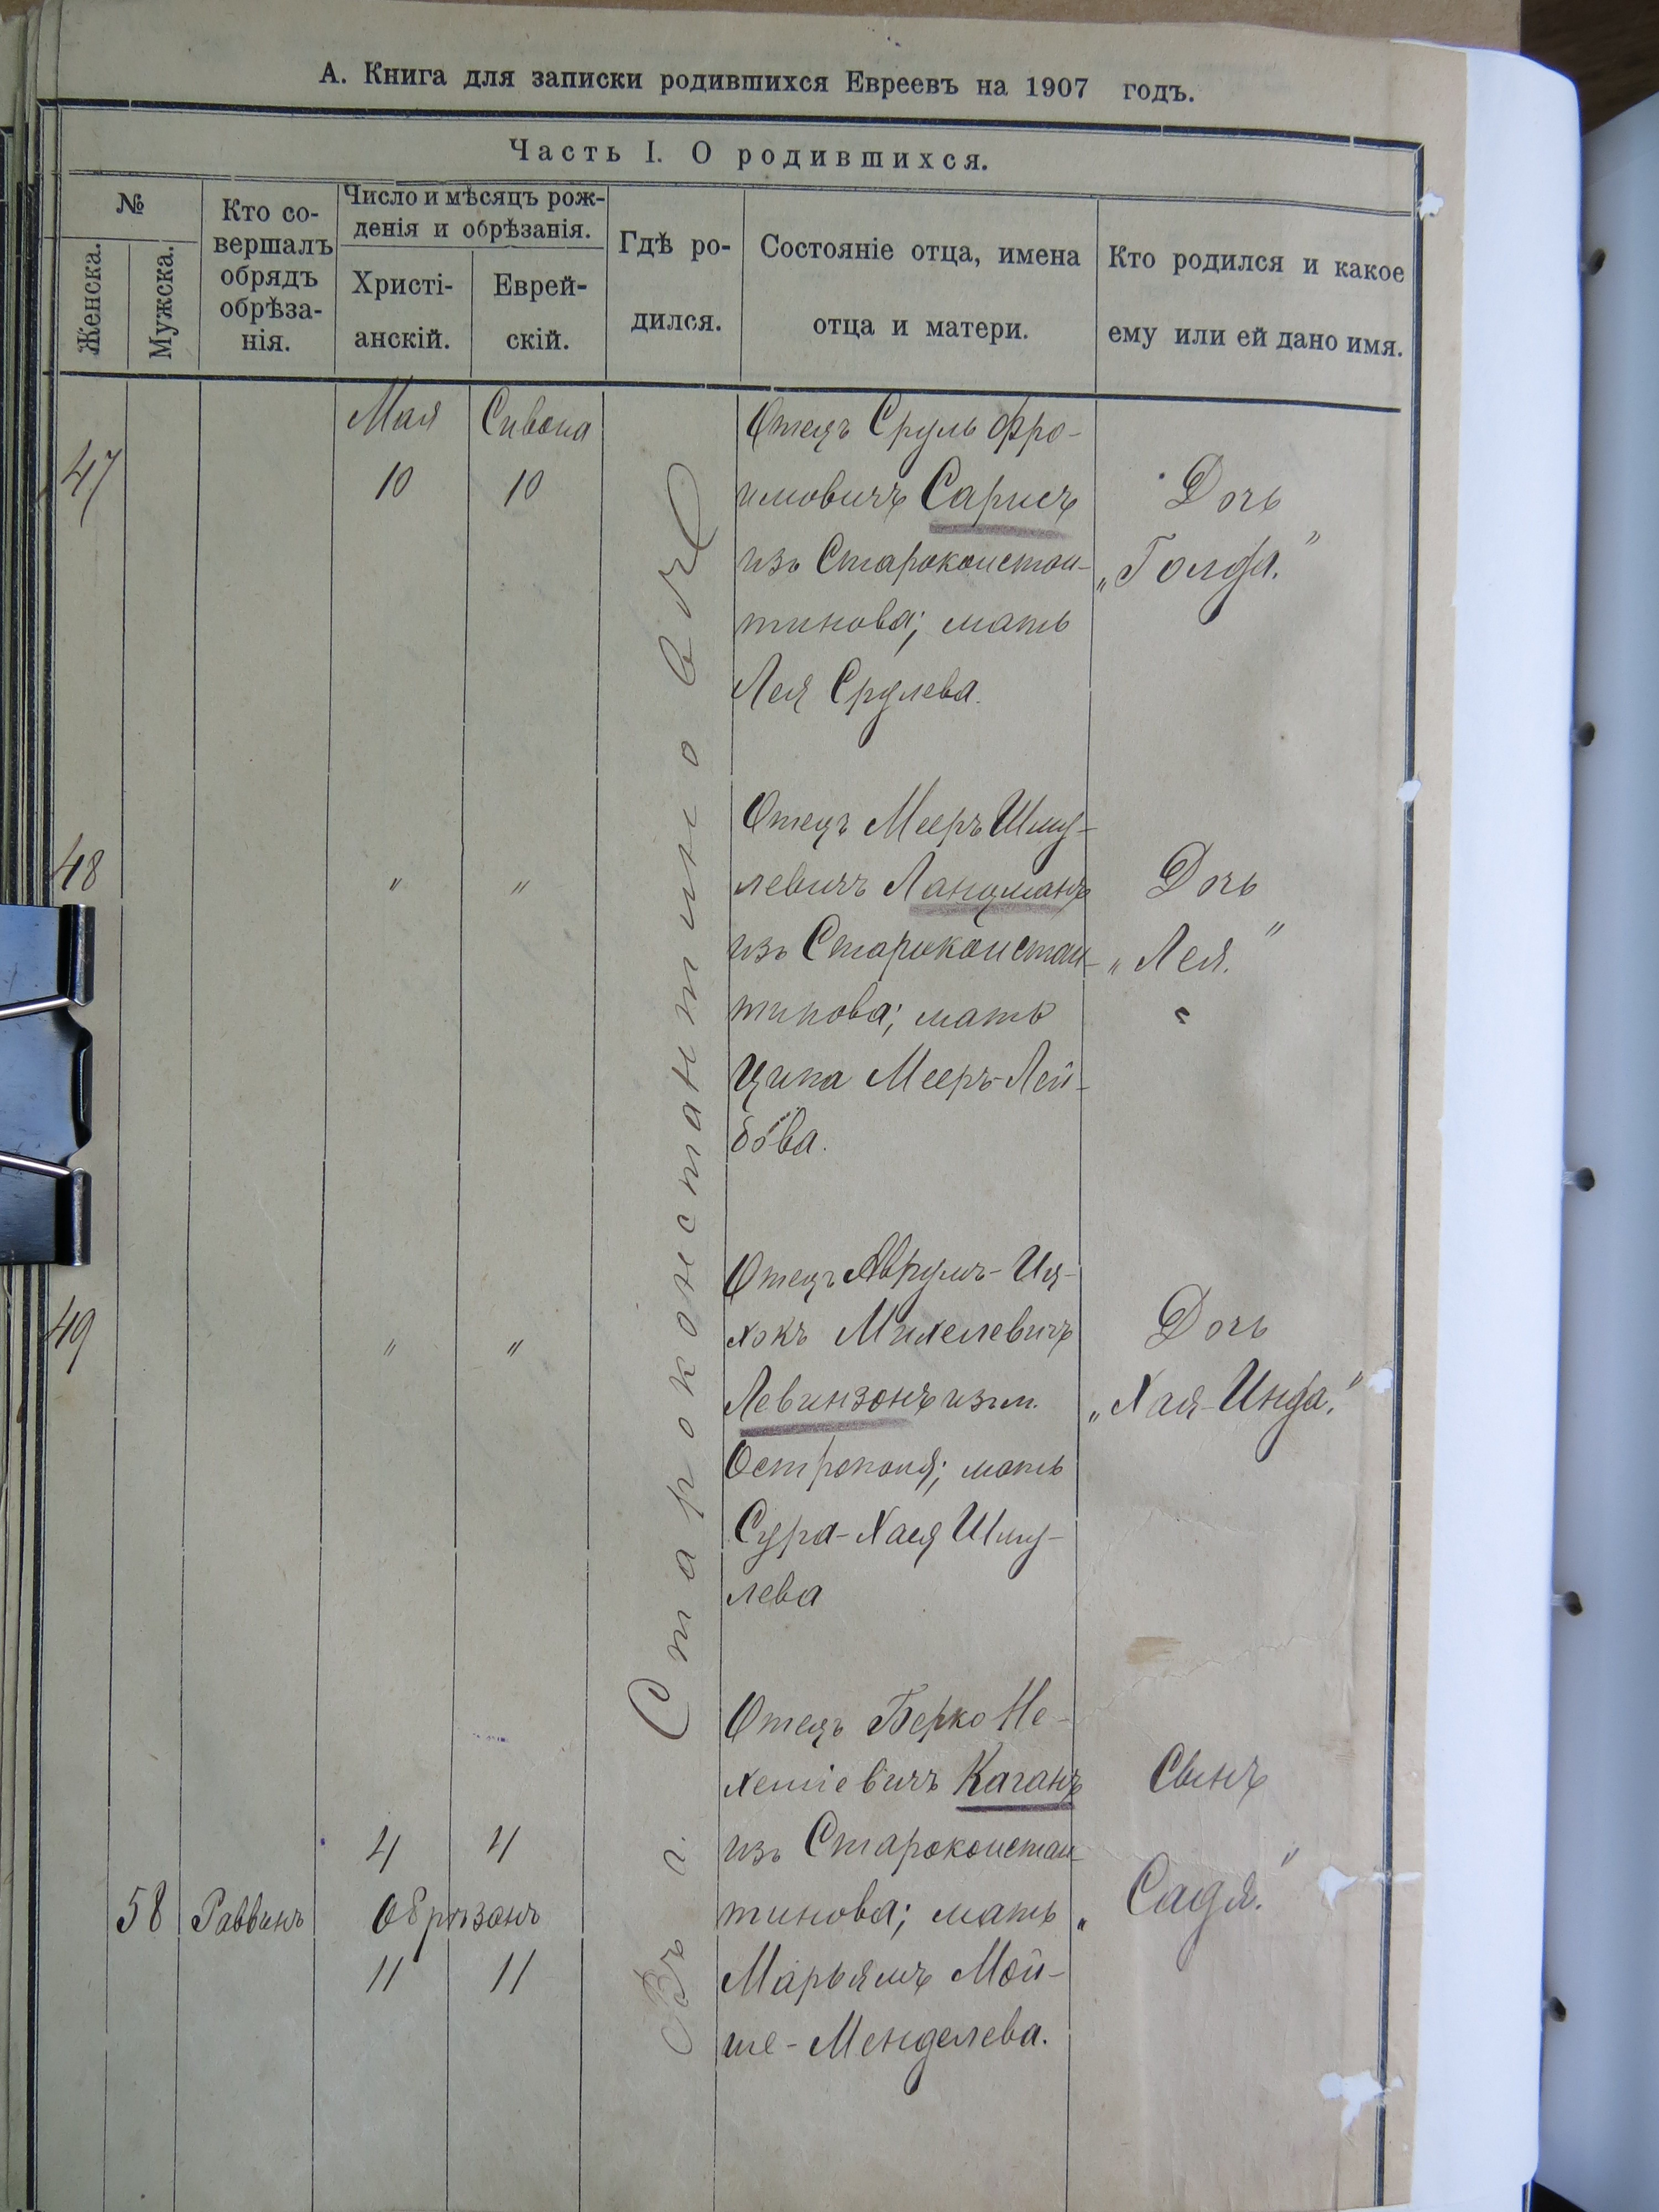 А. Книга для записки родившихся Евреевъ на 1907 годъ.
Часть I. О родившихся.
№
Женска.
Мужска.
Кто со-
вершалъ
обрядъ
обрѣза-
нія.
Число и мѣсяцъ рож-
денія и обрѣзанія.
Христі-
анскій.
Еврей-
скій.
Гдѣ ро-
дился.
Состояніе отца, имена
отца и матери.
Кто родился и какое
ему или ей дано имя.
Въ г. Староконстантиновѣ
47
Мая
10
Сивона
10
Отецъ Сруль Фро-
имовичъ
изъ Староконстан-
тинова; мать
Лея Срулева.
Дочь
„Голда."
48
"
"
Отецъ Мееръ Шму-
левичъ Ланцманъ
изъ Староконстан-
тинова; мать
Ципа Мееръ-Лей-
бова.
Дочь
„Лея."
49
"
"
Отецъ Аврумъ-Иц-
хокъ Михелевичъ
Левинзонъ изъ м.
Острополя; мать
Сура-Хая Шму-
лева
Дочь
„Хая-Инда."
58
Раввинъ
4
4
Обрѣзанъ
11
11
Отецъ Берко Не-
хеміевичъ Каганъ
изъ Староконстан-
тинова; мать
Марьямъ Мой-
ше-Менделева.
Сынъ
„Садя."